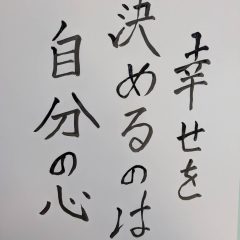 幸せを
決めるのは
自分の心